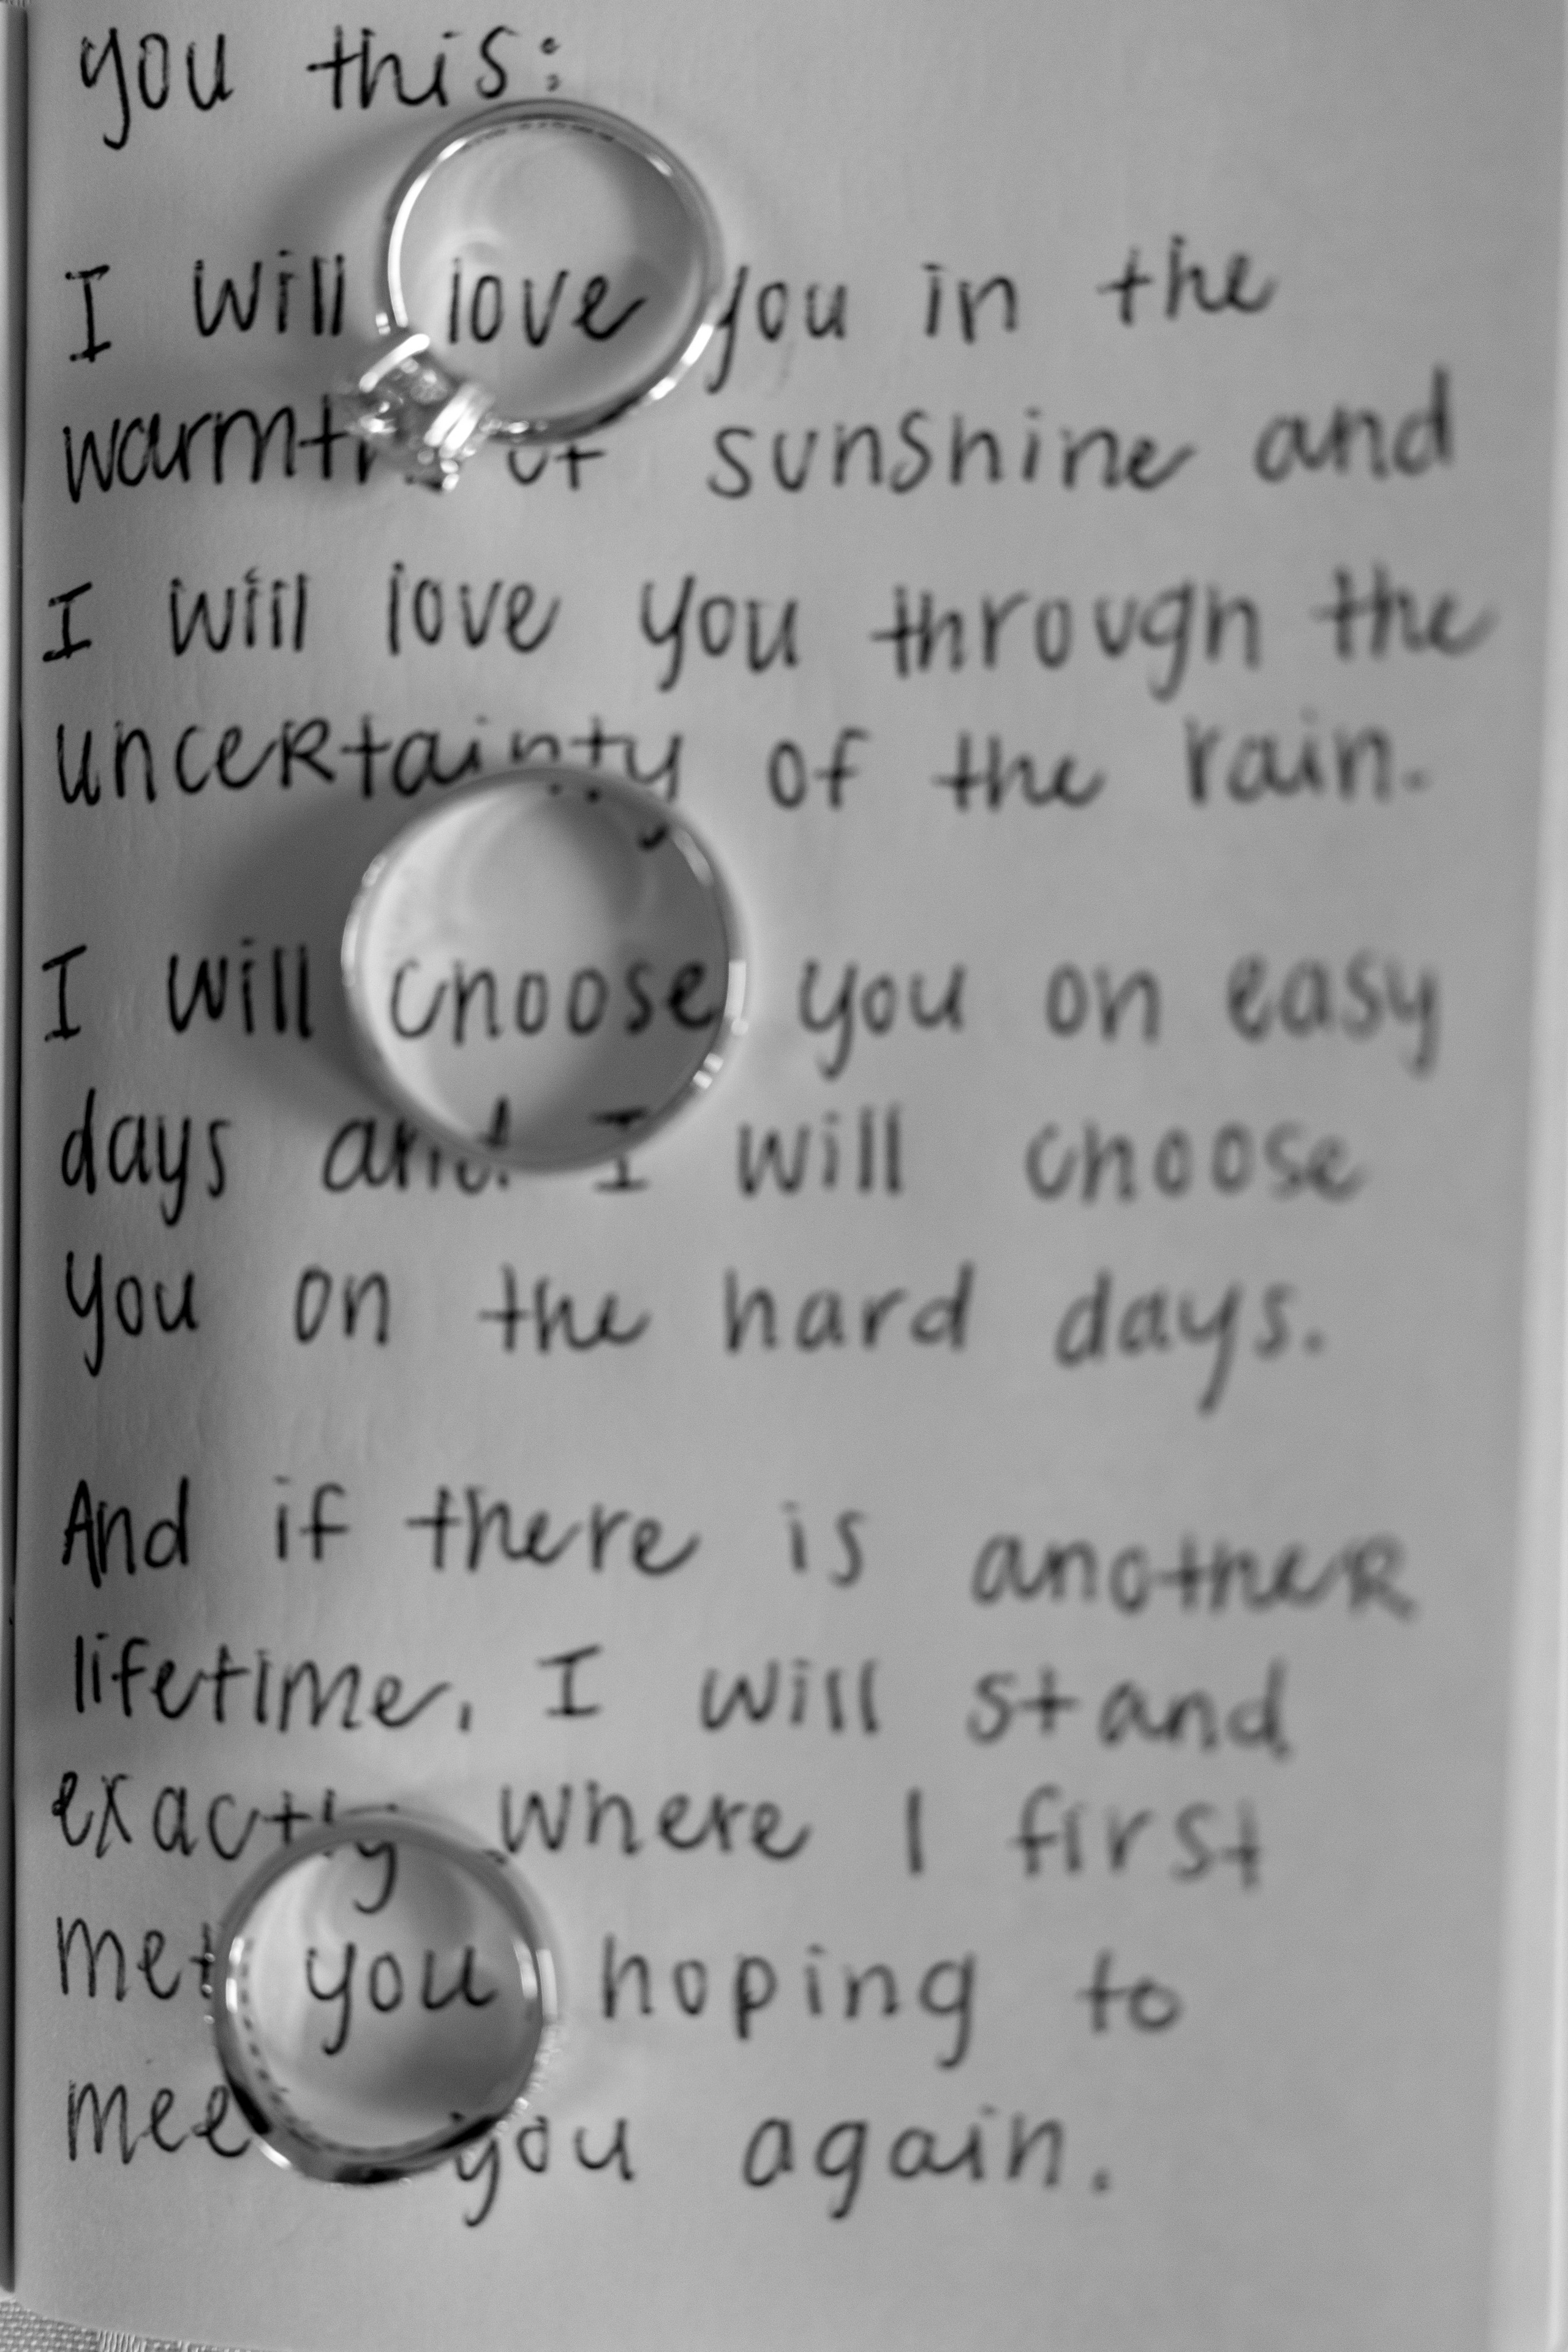 you this:
I will love you in the
warmth of sunshine and
I will love you through the
uncertainty of the rain.
I will choose you on easy
days and I will choose
you on the hard days.
And if there is another
lifetime, I will stand
exactly where I first
met you hoping to
meet you again.